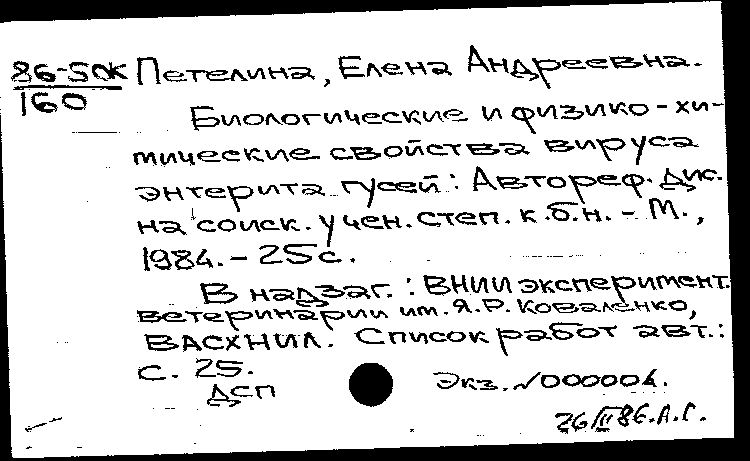 86-5ДК Петелина, Елена Андреевна.
160
Биологические и физико-хи-
мические свойства вируса
энтерита гусей: Автореф. дис.
на соиск. учен. степ. к.б.н. - М.,
1984. - 25с.
В надзаг.: ВНИИ эксперимент.
ветеринарии им. Я.Р. Коваленко,
ВАСХНИЛ. Список работ авт.:
с. 25.
ДСП
Экз. №000004.
26/II 86. А.Г.